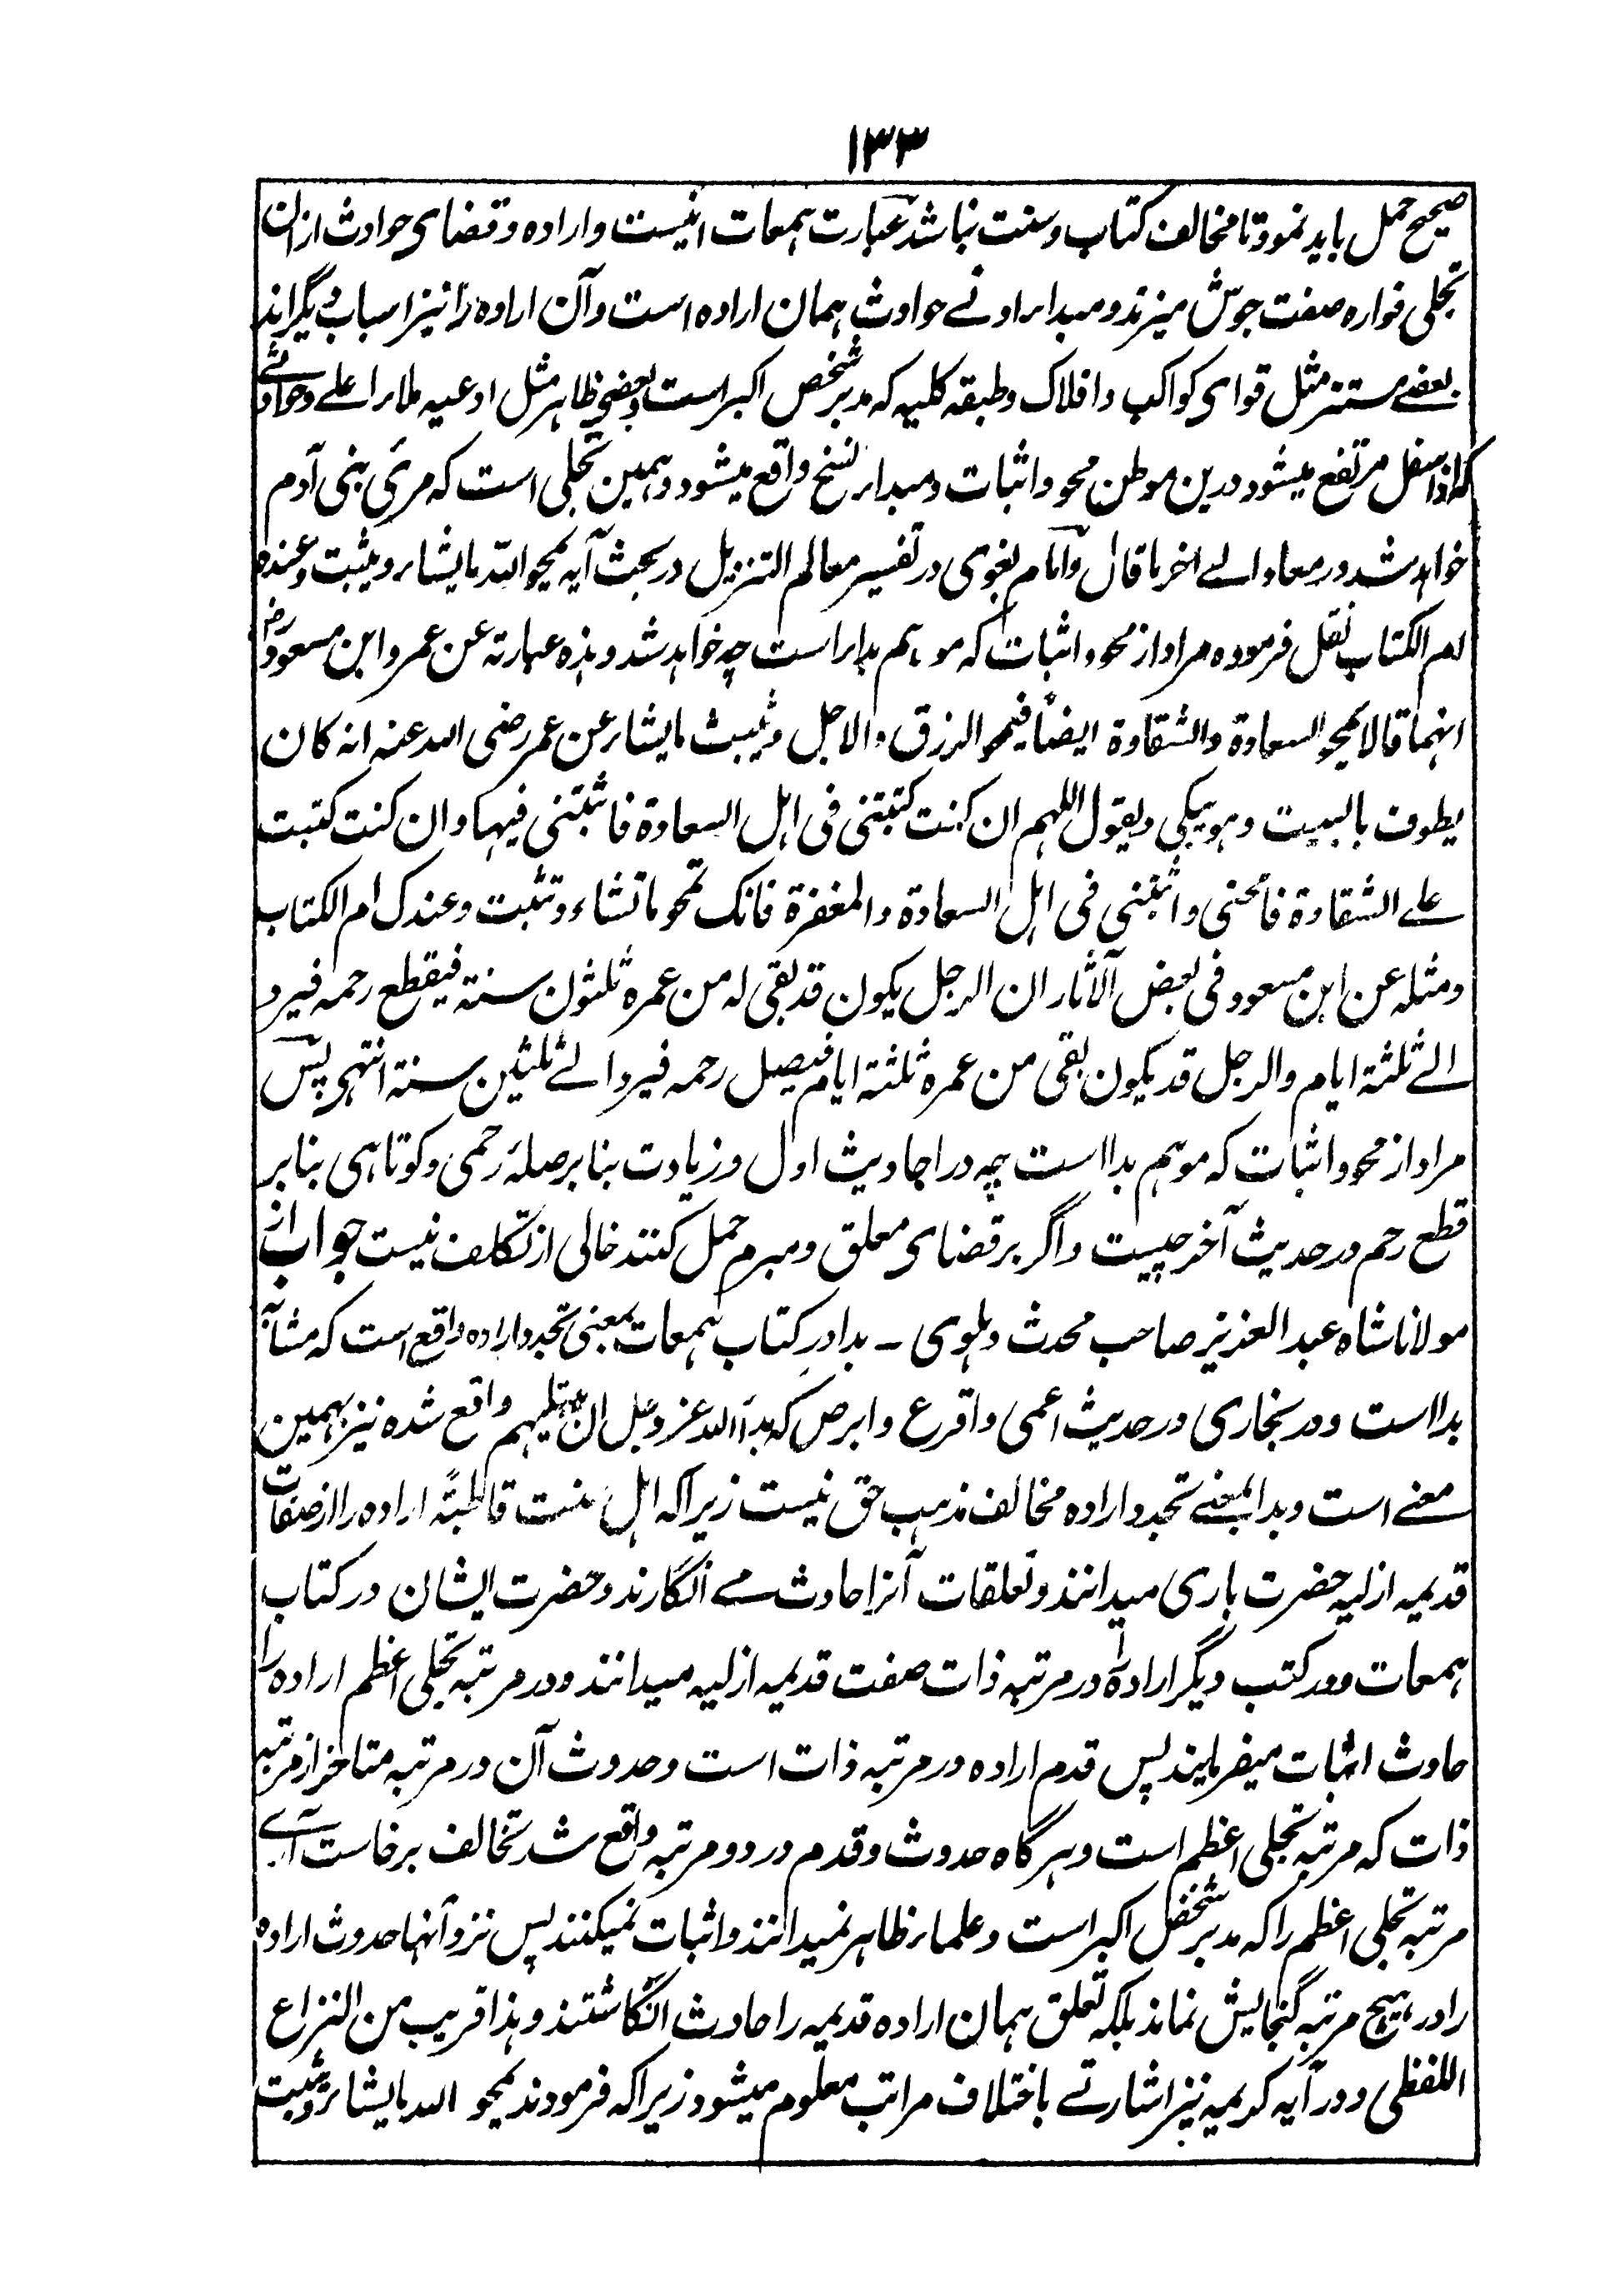 ۱۳۳
صحیح حمل باید نمود تا مخالف کتاب و سنت نباشد عبارت ہمعات اینست و ارادہ و قضای حوادث ازان
تجلی فوارہ صفت جوش میزند و مبداء مرادنے حوادث ہمان ارادہ است و آن ارادہ را نیز اسباب دیگراند
بعضے مستتر مثل قوای کواکب و افلاک و طبقہ کلیہ کہ مدبر شخص اکبر است و بعضی ظاہر مثل ادعیہ ملاء اعلے و
کہ از اسفل مرتفع میشود درین موطن محو و اثبات و مبداء نسخ واقع میشود و ہمین تجلی است کہ مرئی بنی آدم
خواہد شد در معاد الے اخر ما قال و امام بغوی در تفسیر معالم التنزیل در بحث آیہ یمحو اللہ ما یشاء و یثبت و عندہ
ام الکتاب نقل فرمودہ مراد از محو و اثبات کہ موہم بداء است چہ خواہد شد و ہذہ عبارتہ عن عمر و ابن مسعود رض
انہما قالا یمحو السعادۃ والشقاوۃ ایضاً فیمحو الرزق والاجل و یثبت ما یشاء عن عمر رضی اللہ عنہ انہ کان
یطوف بالبیت و ہو یبکی و یقول اللہم ان کنت کتبتنی فی اہل السعادۃ فاثبتنی فیہا و ان کنت کتبت
علے الشقاوۃ فامحنی و اثبتنی فی اہل السعادۃ والمغفرۃ فانک تمحو ما تشاء و تثبت و عندک ام الکتاب
و مثلہ عن ابن مسعود فی بعض الآثار ان الرجل یکون قد بقی لہ من عمرہ ثلثون سنۃ فیقطع رحمہ فیرد
الے ثلثۃ ایام والرجل قد یکون بقی من عمرہ ثلثۃ ایام فیصل رحمہ فیرد الے ثلثین سنۃ انتہی پس
مراد از محو و اثبات کہ موہم بدا است چہ در احادیث اول و زیادت بنابر صلۂ رحمی و کوتاہی بنابر
قطع رحم در حدیث آخر چیست و اگر بر قضای معلق و مبرم حمل کنند خالی از تکلف نیست جواب از
مولانا شاہ عبد العزیز صاحب محدث دہلوی ـ بدا در کتاب ہمعات بمعنی تجدد ارادہ واقع است کہ مشابہ
بدا است و در بخاری در حدیث اعمی و اقرع و ابرص کہ بدأ اللہ عز و جل ان یبتلیہم واقع شدہ نیز بہمین
معنے است و بدا بمعنے تجدد ارادہ مخالف مذہب حق نیست زیرا کہ اہل سنت قاطبۃً ارادہ را از صفات
قدیمہ ازلیہ حضرت باری میدانند و تعلقات آنرا حادث مے انگارند و حضرت ایشان در کتاب
ہمعات و در کتب دیگر ارادہ را در مرتبہ ذات صفت قدیمہ ازلیہ میدانند و در مرتبہ تجلی اعظم ارادہ را
حادث اثبات میفرمایند پس قدم ارادہ در مرتبہ ذات است و حدوث آن در مرتبہ متاخر از مرتبہ
ذات کہ مرتبہ تجلی اعظم است و ہر گاہ حدوث و قدم در دو مرتبہ واقع شد تخالف برخاست آرے
مرتبہ تجلی اعظم را کہ مدبر شخص اکبر است و علماء ظاہر نمیدانند و اثبات نمیکنند پس نزد آنہا حدوث ارادہ
را در ہیچ مرتبہ گنجایش نماند بلکہ تعلق ہمان ارادہ قدیمہ را حادث انگاشتند و ہذا قریب من النزاع
اللفظی و در آیہ کریمہ نیز اشارتے باختلاف مراتب معلوم میشود زیرا کہ فرمودند یمحو اللہ ما یشاء و یثبت